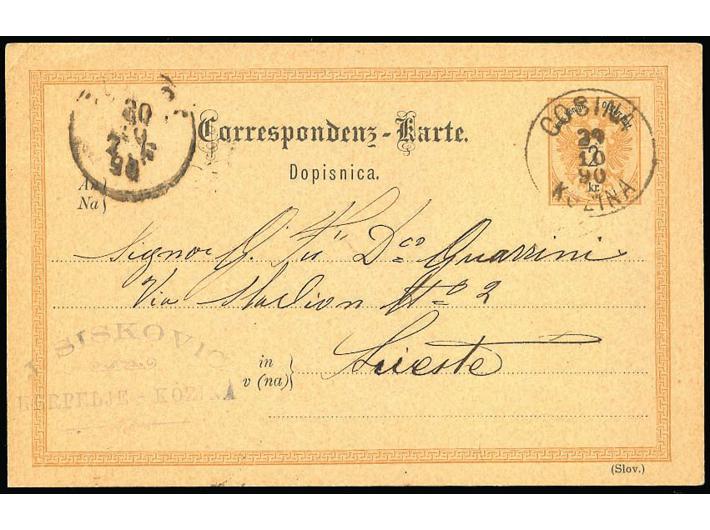 Correspondenz-Karte.
Dopisnica.
COSINA
29
10
90
KOZINA
2
kr.
90
An
Na
Signor G. fu Dco Guarrini
Via Stadion No 2
in
v (na)
Trieste
SISKOVIC
HERPELJE - KOZINA
(Slov.)